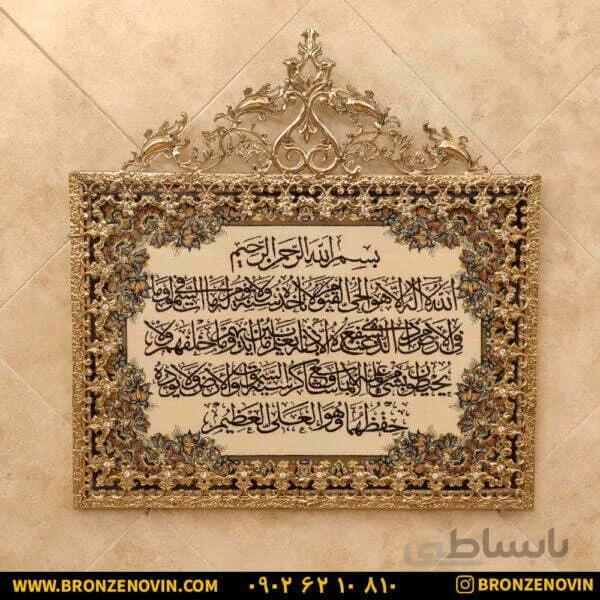 بسم الله الرحمن الرحيم
الله لا إله إلا هو الحي القيوم لا تأخذه سنة ولا نوم له ما في السموات وما
في الأرض من ذا الذي يشفع عنده إلا بإذنه يعلم ما بين أيديهم وما خلفهم ولا
يحيطون بشيء من علمه إلا بما شاء وسع كرسيه السموات والأرض ولا يؤده
حفظهما وهو العلي العظيم
باساطی
WWW.BRONZENOVIN.COM ۰۹۰۲ ۶۲ ۱۰ ۸۱۰ BRONZENOVIN